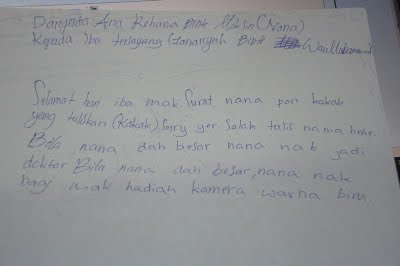 Daripada Ana Rehana Bint (Nana)
Kepada ibu tersayang Bint
Selamat hari ibu mak. Surat nana pon kakak
yang taliskan (Kakak) Sory yer Salah talis nama hehe.
Bila nana dah besar nana nak jadi
doktor Bila nana dah besar, nana nak
bagi mak hadiah kamera warna biru